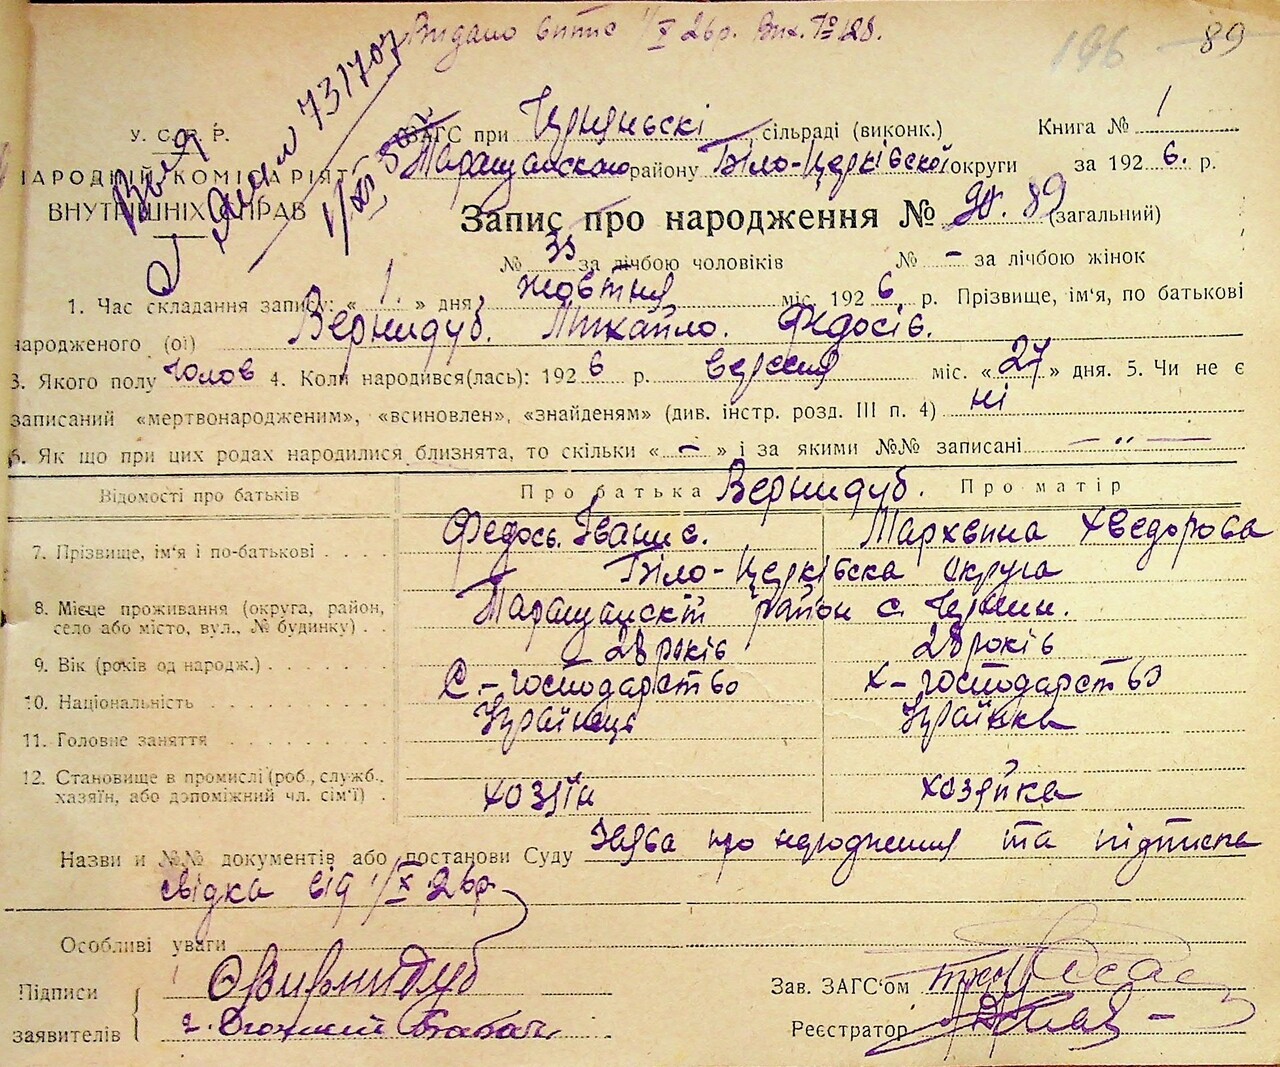 Видано витпс 1/X 26р. Вих. № 128.
196 89
731707
У. С. Р. Р.
НАРОДНІЙ КОМІСАРІЯТ
ВНУТРІШНІХ СПРАВ
ЗАГС при сільраді (виконк.) Книга № 1
Таращанского району Біло-Церківской округи за 1926. р.
Запис про народження № 90. 89 (загальний)
№ 33 за лічбою чоловіків № – за лічбою жінок
1. Час складання запису: « 1. » дня жовтня міс. 1926. р. Прізвище, ім'я, по батькові
народженого (ої) Вернидуб. Михайло. Федосів.
3. Якого полу Чолов 4. Коли народився(лась): 1926 р. вересня міс. «27» дня. 5. Чи не є
записаний «мертвонародженим», «всиновлен», «знайденям» (див. інстр. розд. III п. 4) ні
6. Як що при цих родах народилися близнята, то скільки « – » і за якими №№ записані — " —
Відомості про батьків Про батька Вернидуб. Про матір
7. Прізвище, ім'я і по-батькові Федось. Іванис. Мархвина Хведорова
Біло-Церківска округа
8. Місце проживання (округа, район, Таращанскій район с.
село або місто, вул., № будинку)
9. Вік (років од народж.) 28 років 28 років
С-господарство Х-господарство
10. Національність Українець Українка
11. Головне заняття
12. Становище в промислі (роб., служб., хазяїн, або допоміжний чл. сім'ї) хозяїн хозяйка
Назви и №№ документів або постанови Суду Заява про народження та підписка
свідка від 1/X 26р.
Особливі уваги
Підписи Зав. ЗАГС'ом
заявителів Реєстратор